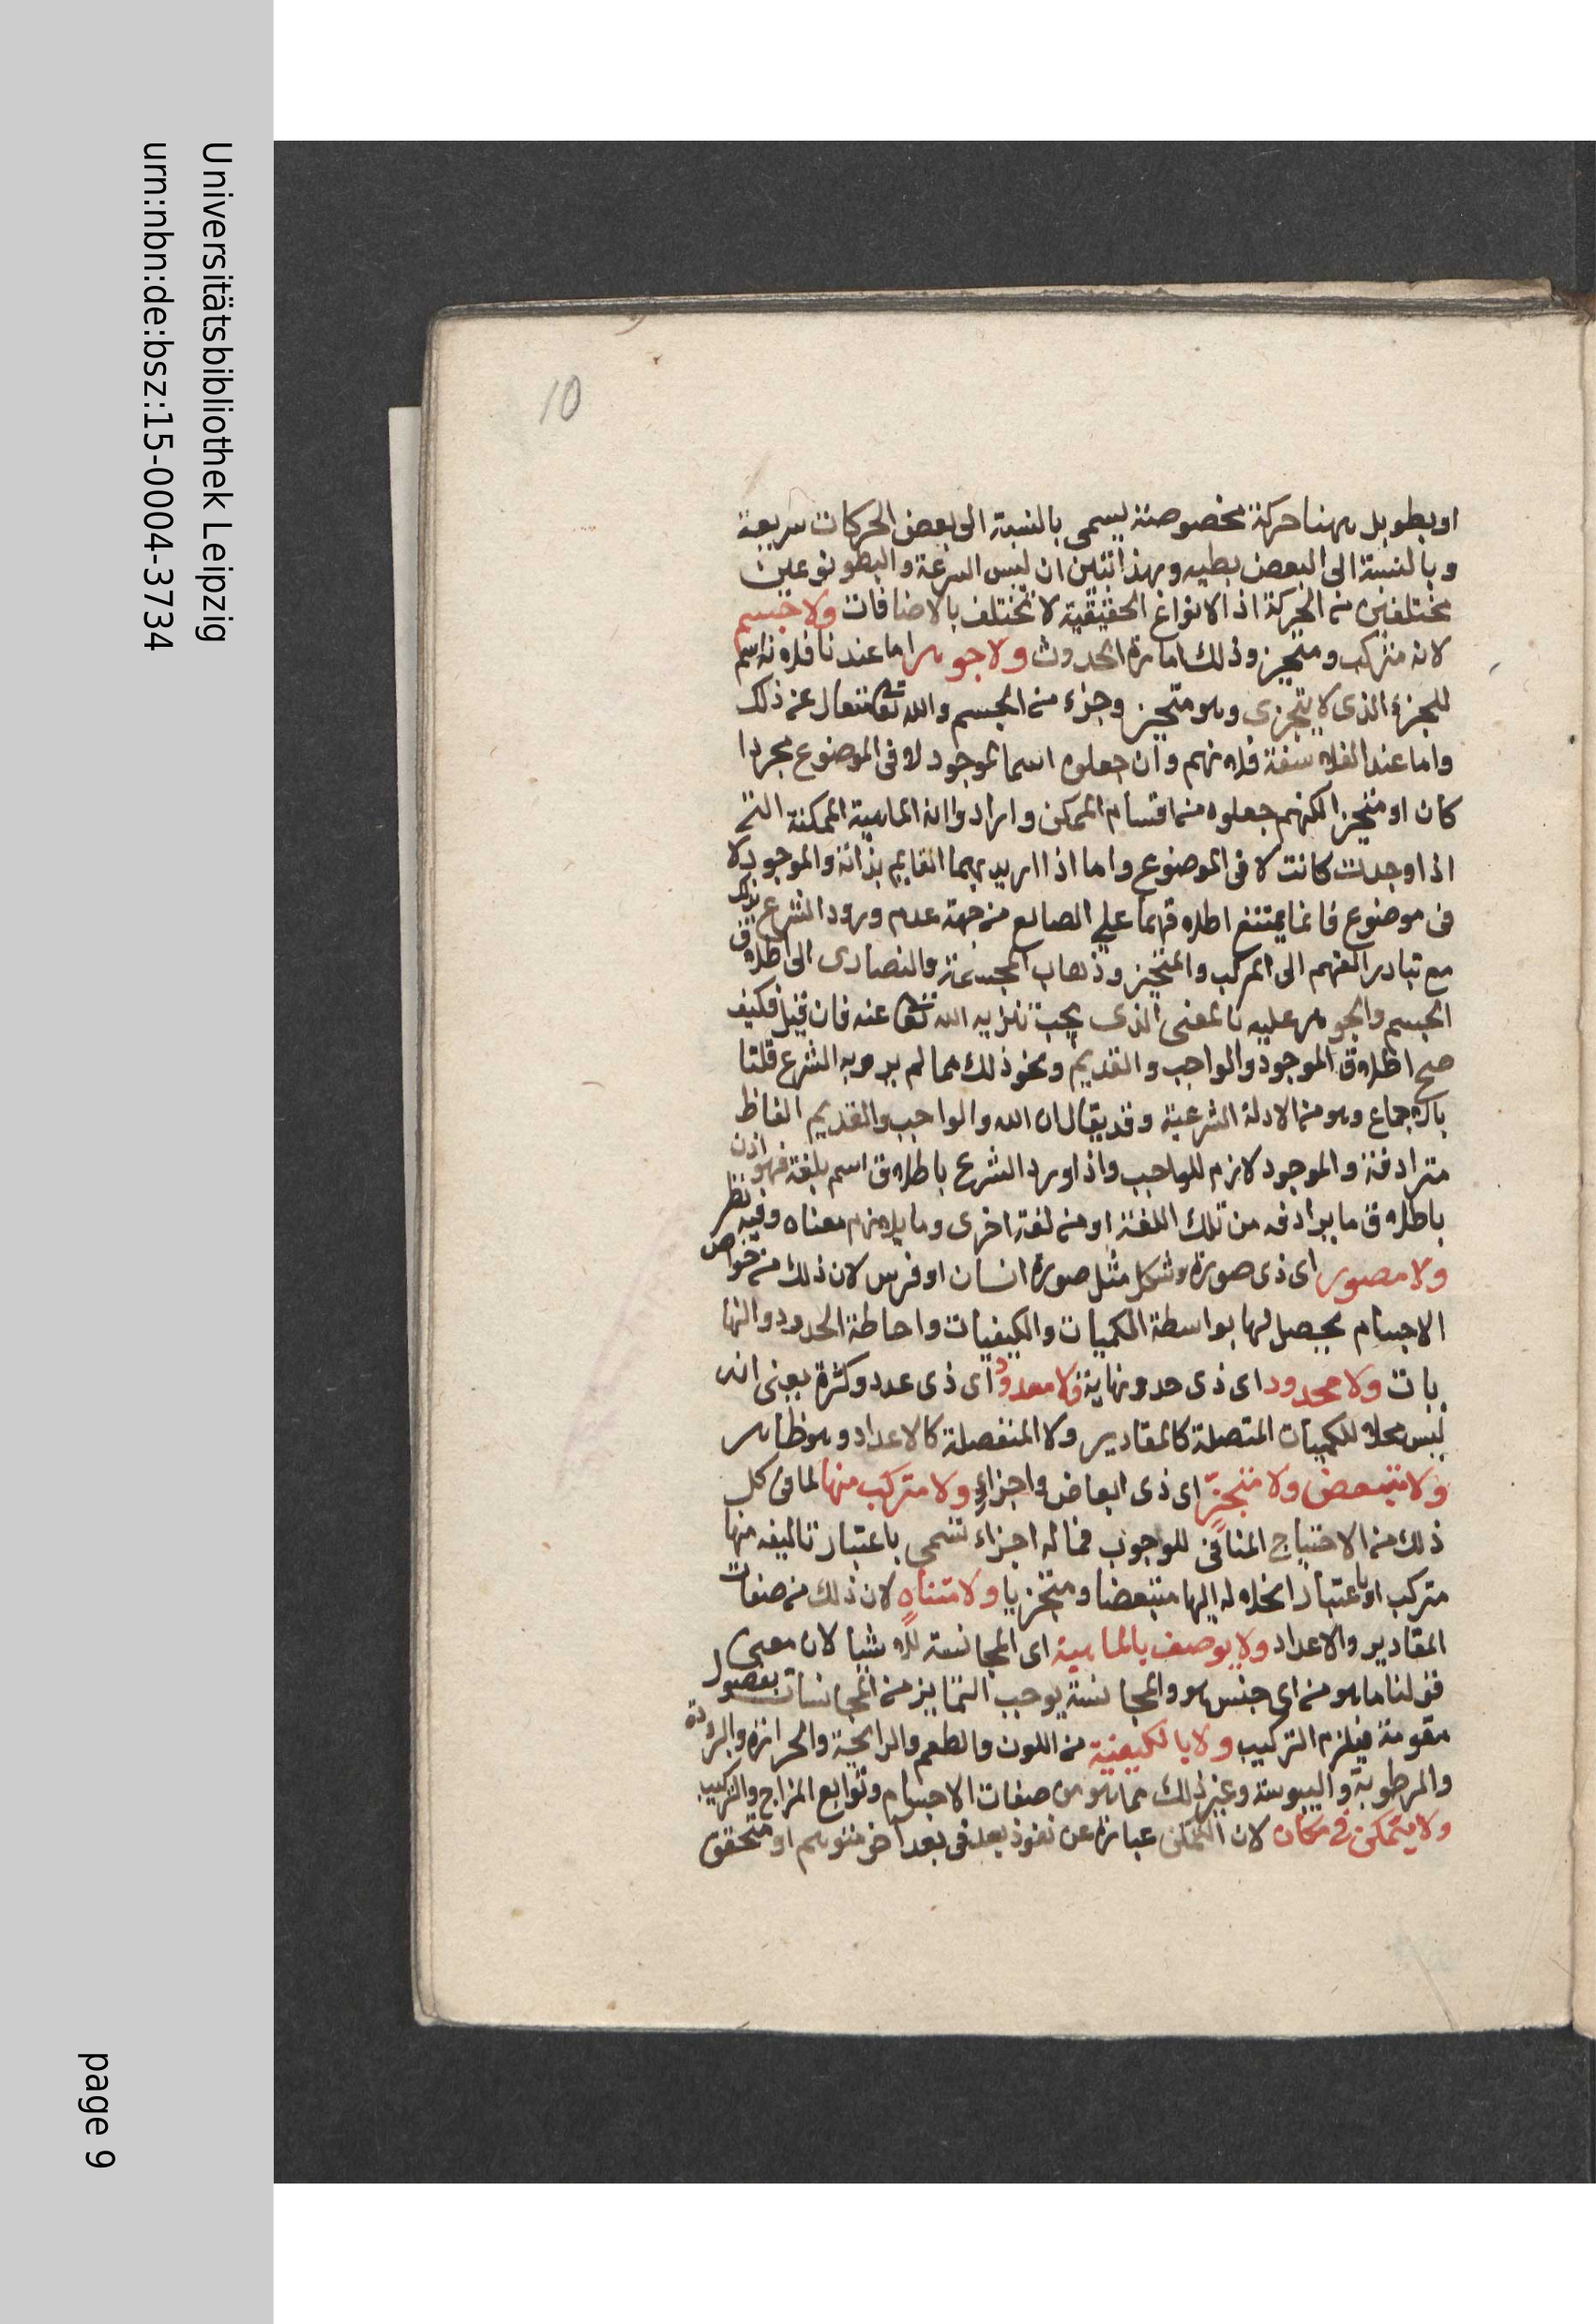 10
او بطو بل ههنا حركة مخصوصة يسمى بالنسبة الى بعض الحركات سريعة
وبالنسبة الى البعض بطيه وبهذا تبين ان ليس السرعة والبطو نوعين
مختلفين من الحركة اذ الانواع الحقيقية لا تختلف بالاضافات ولا جسم
لانه متركب ومتحيز وذلك امارة الحدوث ولا جوهر اما عندنا فلانه اسم
للجزء الذى لا يتجزى وهو متحيز وجزء من الجسم والله تعا متعال عن ذلك
واما عند الفلاسفة فلانهم وان جعلوه اسما للموجود لا فى الموضوع مجردا
كان او متحيزا لكنهم جعلوه من اقسام الممكن وارادوا به الماهية الممكنة التى
اذا وجدت كانت لا فى الموضوع واما اذا اريد بهما القايم بذاته والموجود لا
فى موضوع فانما يمتنع اطلاقهما على الصانع من جهة عدم ورود الشرع بذلك
مع تبادر الفهم الى المركب والمتحيز وذهاب المجسمة والنصارى الى اطلاق
الجسم والجوهر عليه بالمعنى الذى يجب تنزيه الله تعا عنه فان قيل فكيف
صح اطلاق الموجود والواجب والقديم ونحو ذلك مما لم يرد به الشرع قلنا
بالاجماع وهو من الادلة الشرعية وقد يقال ان الله والواجب والقديم الفاظ
مترادفة والموجود لازم للواجب واذا ورد الشرع باطلاق اسم بلغة فهو اذن
باطلاق ما يرادفه من تلك اللغة او من لغة اخرى وما يلازم معناه وفيه نظر
ولا مصور اى ذى صورة وشكل مثل صورة انسان او فرس لان ذلك من خواص
الاجسام يحصل لها بواسطة الكميات والكيفيات واحاطة الحدود والنها
يات ولا محدود اى ذى حد ونهاية ولا معدود اى ذى عدد وكثرة يعنى انه
ليس محلا للكميات المتصلة كالمقادير ولا المنفصلة كالاعداد وهو ظاهر
ولا متبعض ولا متجزٍّ اى ذى ابعاض واجزاءٍ ولا متركب منها لما فى كل
ذلك من الاحتياج المنافى للوجوب فما له اجزاء تسمى باعتبار تاليفه منها
متركب او باعتبار انحلاله اليها متبعضا ومتجزيا ولا متناهٍ لان ذلك من صفات
المقادير والاعداد ولا يوصف بالماهية اى المجانسة للاشيا لان معنى
قولنا ما هو من اى جنس هو والمجانسة يوجب التمايز من المجانسات بفصول
مقومة فيلزم التركيب ولا بالكيفية من اللون والطعم والرايحة والحرارة والبرودة
والرطوبة واليبوسة وغير ذلك مما هو من صفات الاجسام وتوابع المزاج والتركيب
ولا يتمكن فى مكان لان التمكن عبارة عن نفوذ بعد فى بعد اخر متوهم او متحقق
Universitätsbibliothek Leipzig
urn:nbn:de:bsz:15-0004-3734
page 9